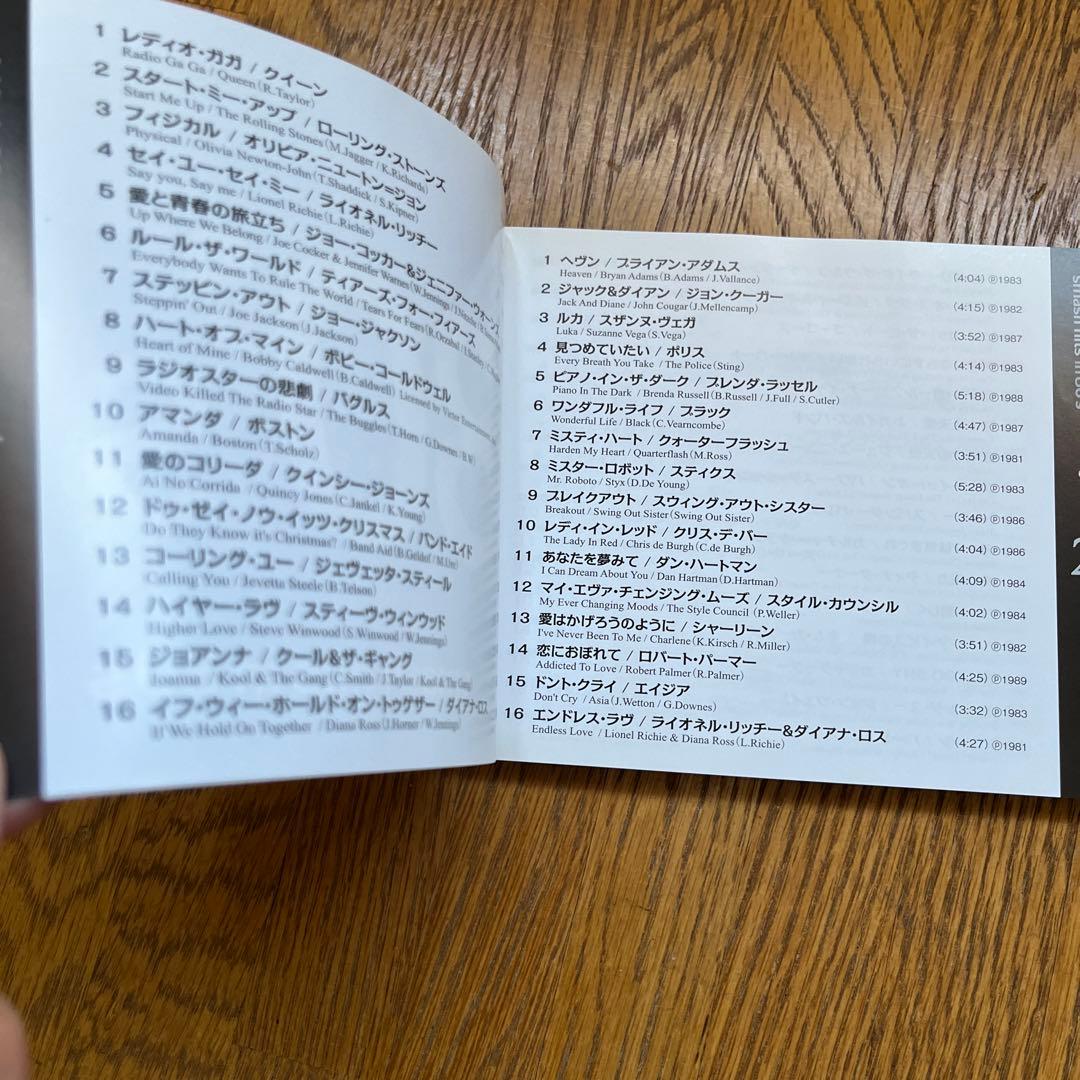 1 レディオ・ガガ / クイーン
Radio Ga Ga / Queen(R.Taylor)
2 スタート・ミー・アップ / ローリング・ストーンズ
Start Me Up / The Rolling Stones(M.Jagger / K.Richards)
3 フィジカル / オリビア・ニュートン=ジョン
Physical / Olivia Newton-John(T.Shaddick / S.Kipner)
4 セイ・ユー・セイ・ミー / ライオネル・リッチー
Say you, Say me / Lionel Richie(L.Richie)
5 愛と青春の旅立ち / ジョー・コッカー&ジェニファー・ウォーンズ
Up Where We Belong / Joe Cocker & Jennifer Warnes(W.Jennings /
6 ルール・ザ・ワールド / ティアーズ・フォー・フィアーズ
Everybody Wants To Rule The World / Tears For Fears(R.Orzabal /
7 ステッピン・アウト / ジョー・ジャクソン
Steppin' Out / Joe Jackson(J.Jackson)
8 ハート・オブ・マイン / ボビー・コールドウェル
Heart of Mine / Bobby Caldwell(B.Caldwell) Licensed by Victor Entertainment,
9 ラジオスターの悲劇 / バグルス
Video Killed The Radio Star / The Buggles(T.Horn / G.Downes / B.W
10 アマンダ / ボストン
Amanda / Boston(T.Scholz)
11 愛のコリーダ / クインシー・ジョーンズ
Ai No Corrida / Quincy Jones(C.Jankel / K.Young)
12 ドゥ・ゼイ・ノウ・イッツ・クリスマス / バンド・エイド
Do They Know it's Christmas? / Band Aid(B.Geldof / M.Ure)
13 コーリング・ユー / ジェヴェッタ・スティール
Calling You / Jevetta Steele(B.Telson)
14 ハイヤー・ラヴ / スティーヴ・ウィンウッド
Higher Love / Steve Winwood(S.Winwood / W.Jennings)
15 ジョアンナ / クール&ザ・ギャング
Joanna / Kool & The Gang(C.Smith / J.Taylor / Kool & The Gang)
16 イフ・ウィー・ホールド・オン・トゥゲザー / ダイアナ・ロス
If We Hold On Together / Diana Ross(J.Horner / W.Jennings)
1 ヘヴン / ブライアン・アダムス
Heaven / Bryan Adams(B.Adams / J.Vallance) (4:04) Ⓟ1983
2 ジャック&ダイアン / ジョン・クーガー
Jack And Diane / John Cougar(J.Mellencamp) (4:15) Ⓟ1982
3 ルカ / スザンヌ・ヴェガ
Luka / Suzanne Vega(S.Vega) (3:52) Ⓟ1987
4 見つめていたい / ポリス
Every Breath You Take / The Police(Sting) (4:14) Ⓟ1983
5 ピアノ・イン・ザ・ダーク / ブレンダ・ラッセル
Piano In The Dark / Brenda Russell(B.Russell / J.Full / S.Cutler) (5:18) Ⓟ1988
6 ワンダフル・ライフ / ブラック
Wonderful Life / Black(C.Vearncombe) (4:47) Ⓟ1987
7 ミスティ・ハート / クォーターフラッシュ
Harden My Heart / Quarterflash(M.Ross) (3:51) Ⓟ1981
8 ミスター・ロボット / スティクス
Mr. Roboto / Styx(D.De Young) (5:28) Ⓟ1983
9 ブレイクアウト / スウィング・アウト・シスター
Breakout / Swing Out Sister(Swing Out Sister) (3:46) Ⓟ1986
10 レディ・イン・レッド / クリス・デ・バー
The Lady In Red / Chris de Burgh(C.de Burgh) (4:04) Ⓟ1986
11 あなたを夢みて / ダン・ハートマン
I Can Dream About You / Dan Hartman(D.Hartman) (4:09) Ⓟ1984
12 マイ・エヴァ・チェンジング・ムーズ / スタイル・カウンシル
My Ever Changing Moods / The Style Council (P.Weller) (4:02) Ⓟ1984
13 愛はかげろうのように / シャーリーン
I've Never Been To Me / Charlene(K.Kirsch / R.Miller) (3:51) Ⓟ1982
14 恋におぼれて / ロバート・パーマー
Addicted To Love / Robert Palmer(R.Palmer) (4:25) Ⓟ1989
15 ドント・クライ / エイジア
Don't Cry / Asia(J.Wetton / G.Downes) (3:32) Ⓟ1983
16 エンドレス・ラヴ / ライオネル・リッチー&ダイアナ・ロス
Endless Love / Lionel Richie & Diana Ross(L.Richie) (4:27) Ⓟ1981
smash hits
2